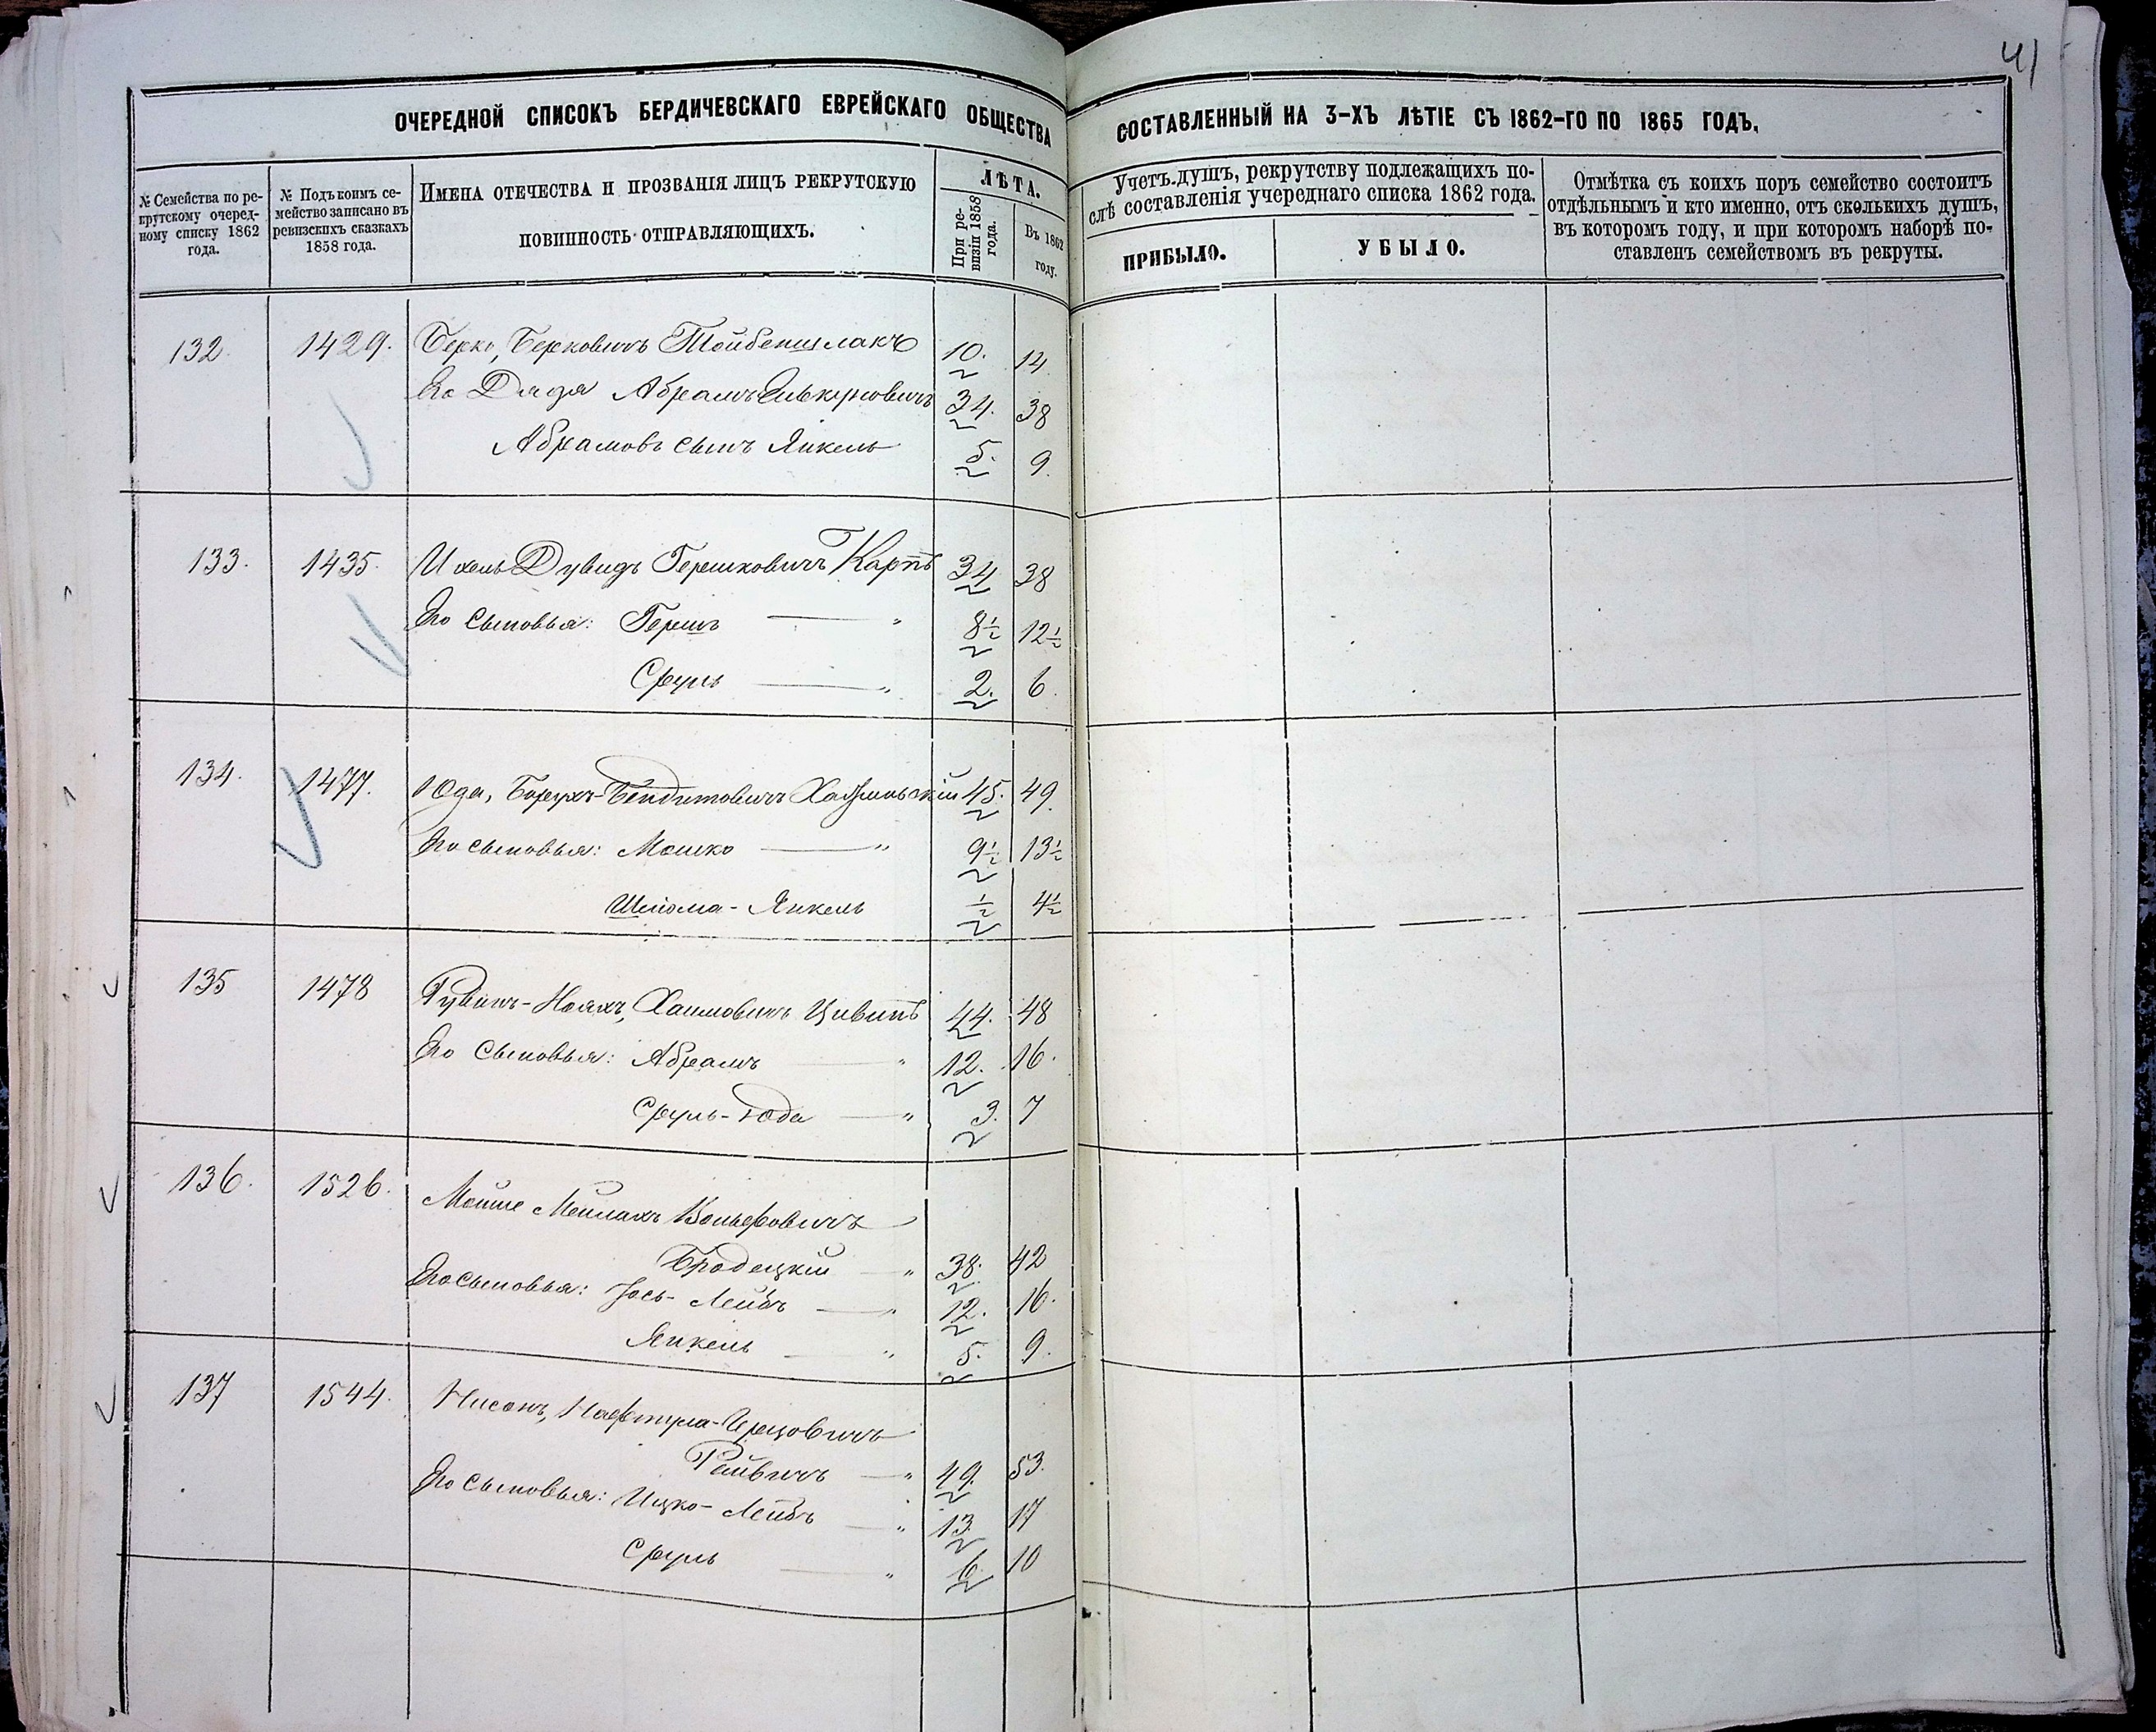 41
ОЧЕРЕДНОЙ СПИСОКЪ БЕРДИЧЕВСКАГО ЕВРЕЙСКАГО ОБЩЕСТВА СОСТАВЛЕННЫЙ НА 3-ХЪ ЛѢТІЕ СЪ 1862-ГО ПО 1865 ГОДЪ.
№ Семейства по ре-
крутскому очеред-
ному списку 1862
года.
№ Подъ коимъ се-
мейство записано въ
ревизскихъ сказкахъ
1858 года.
ИМЕНА ОТЕЧЕСТВА И ПРОЗВАНІЯ ЛИЦЪ РЕКРУТСКУЮ
ПОВИННОСТЬ ОТПРАВЛЯЮЩИХЪ.
ЛѢТА.
При ре-
визіи 1858
года.
Въ 1862
году.
Учетъ душъ, рекрутству подлежащихъ по-
слѣ составленія учереднаго списка 1862 года.
ПРИБЫЛО.
УБЫЛО.
Отмѣтка съ коихъ поръ семейство состоитъ
отдѣльнымъ и кто именно, отъ сколькихъ душъ,
въ котором году, и при котором наборѣ по-
ставленъ семейством въ рекруты.
132. 1429. Берко, Берковичъ Тойбеншлакъ 10. 14
Его Дядя Абрамъ 34. 38
Абрамовъ сынъ Янкель 5. 9.
133. 1435. Ихель Дувидъ Гершковичъ Карпъ 34 38
Его сыновья: Гершъ — " 8½ 12½
Сруль — " 2. 6.
134. 1477. Юда, Борухъ-Бендитовичъ 45. 49.
Его сыновья: Мошко — " 9½ 13½
Шлёма-Янкель ½ 4½
135 1478 Рувинъ-Ноахъ, Хаимовичъ Цивинъ 44. 48
Его сыновья: Абрамъ — " 12. 16.
Сруль-Юда — " 3. 7
136. 1526. Мойше Мейлахъ Вольфовичъ
Бродецкій — " 38. 42
Его сыновья: Іось-Лейбъ — " 12. 16.
Янкель — " 5. 9.
137 1544. Нисонъ, Нафтула-Герцовичъ
Райвичъ — " 49. 53.
Его сыновья: Ицко-Лейбъ — " 13. 17
Сруль — " 6. 10